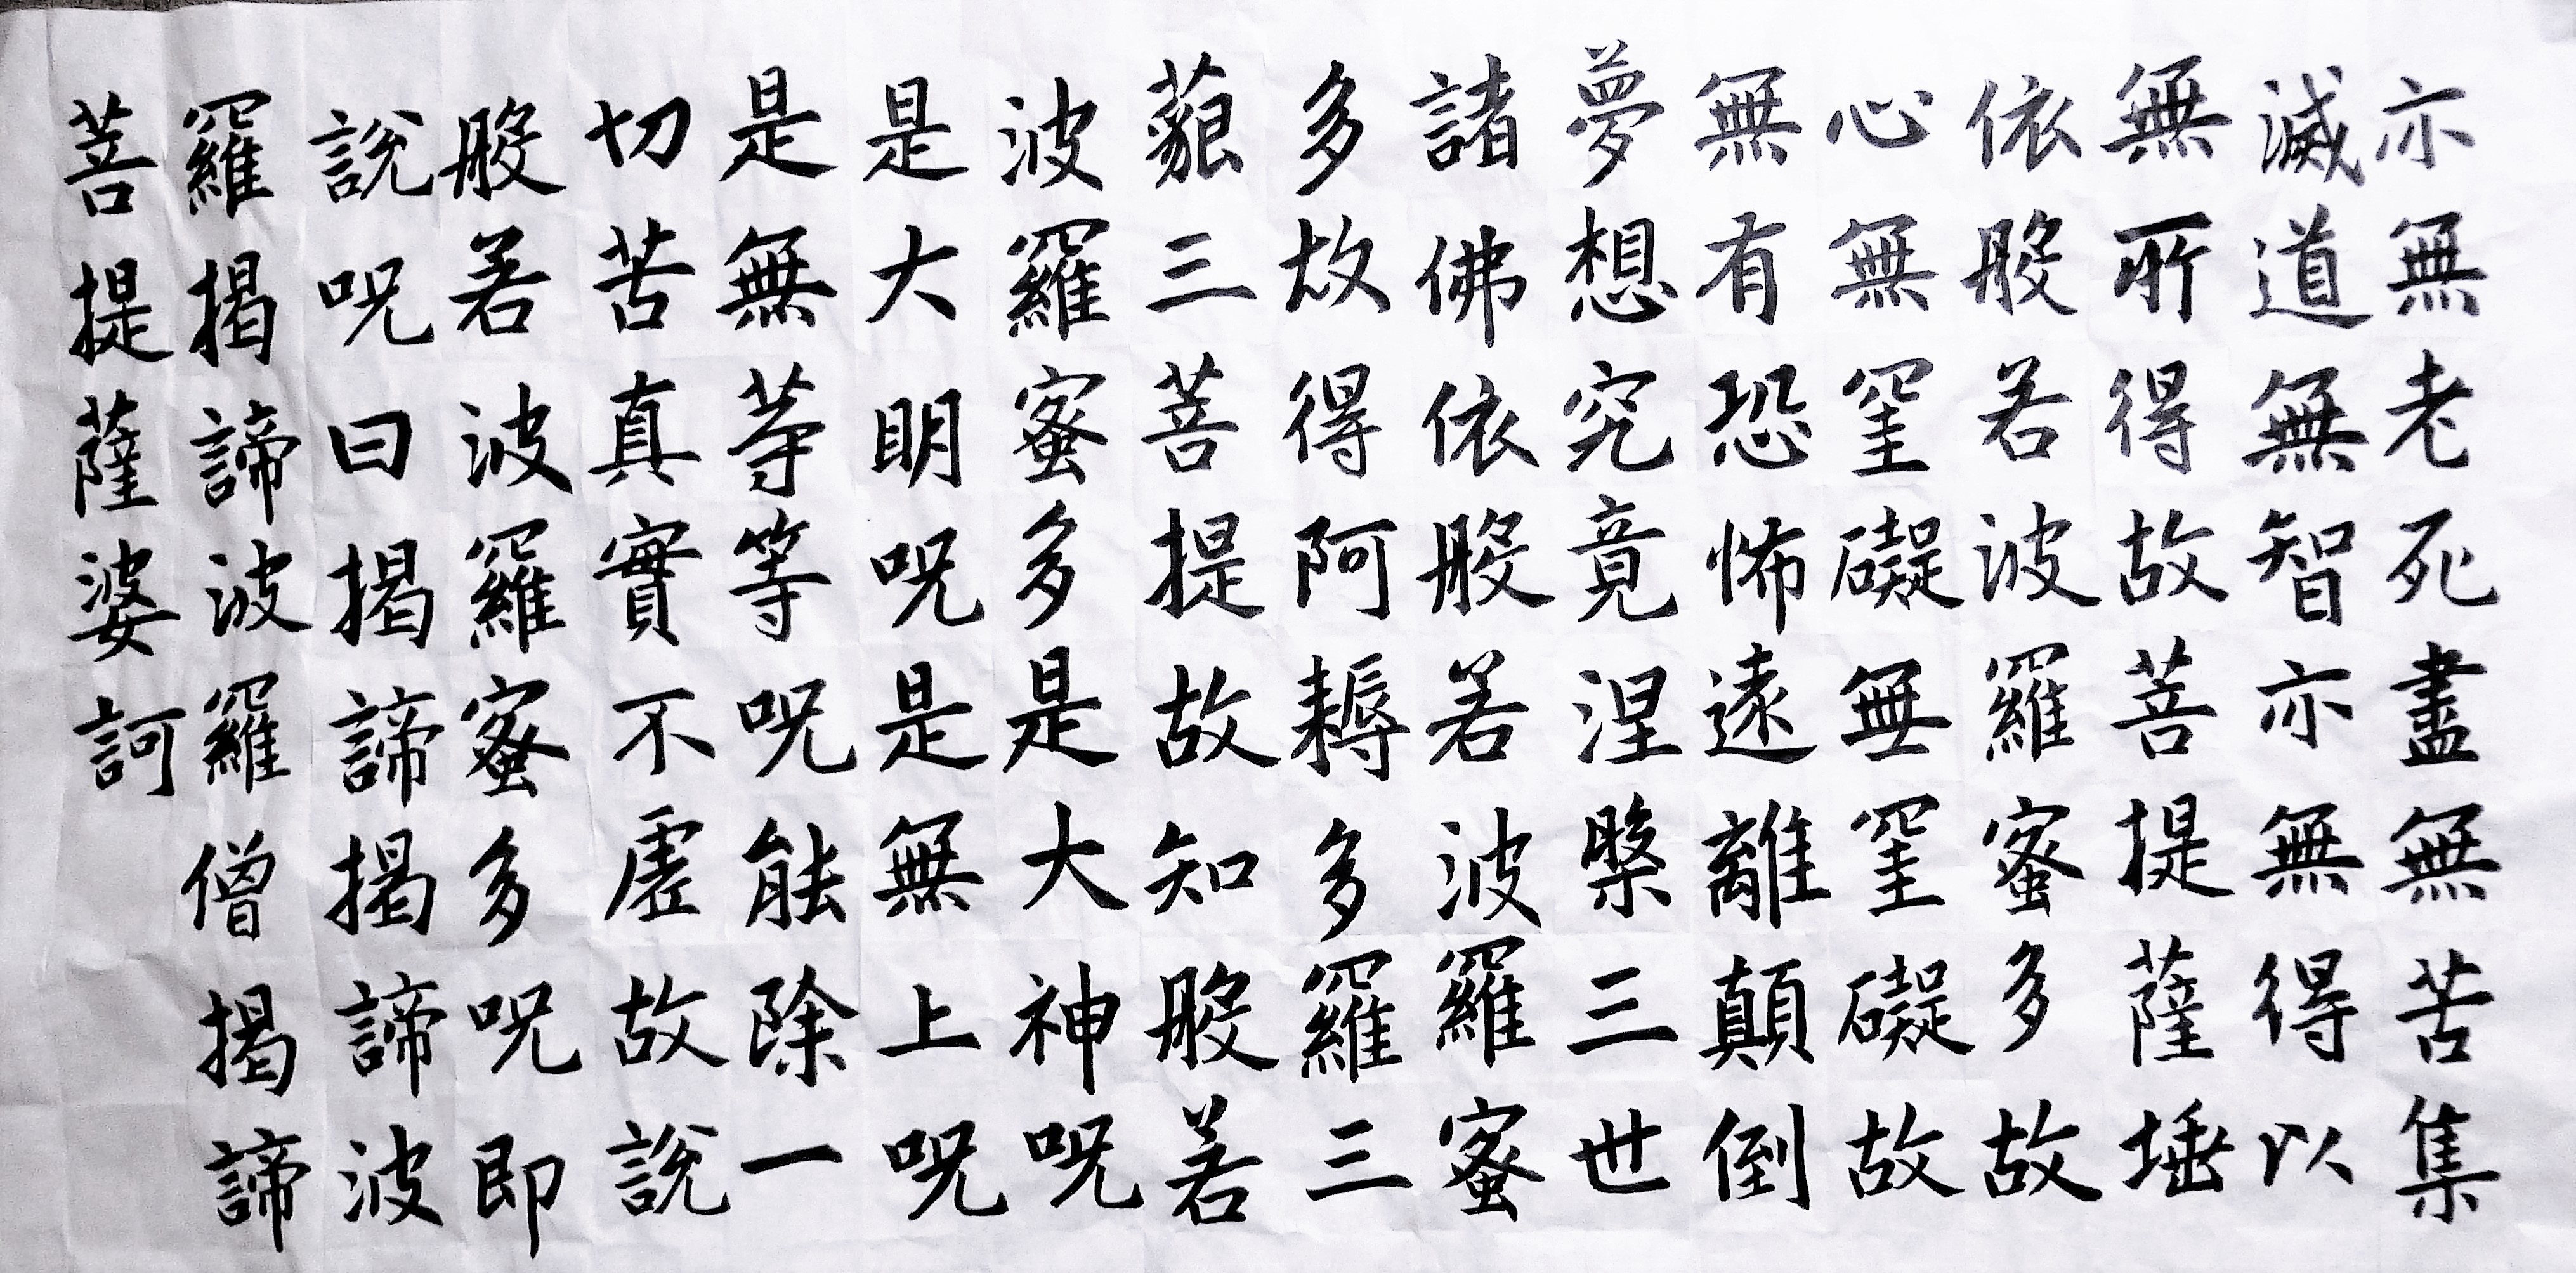 亦無老死盡無苦集
滅道無智亦無得以
無所得故菩提薩埵
依般若波羅蜜多故
心無罣礙無罣礙故
無有恐怖遠離顛倒
夢想究竟涅槃三世
諸佛依般若波羅蜜
多故得阿耨多羅三
藐三菩提故知般若
波羅蜜多是大神呪
是大明呪是無上呪
是無等等呪能除一
切苦真實不虛故說
般若波羅蜜多呪即
說呪曰揭諦揭諦波
羅揭諦波羅僧揭諦
菩提薩婆訶